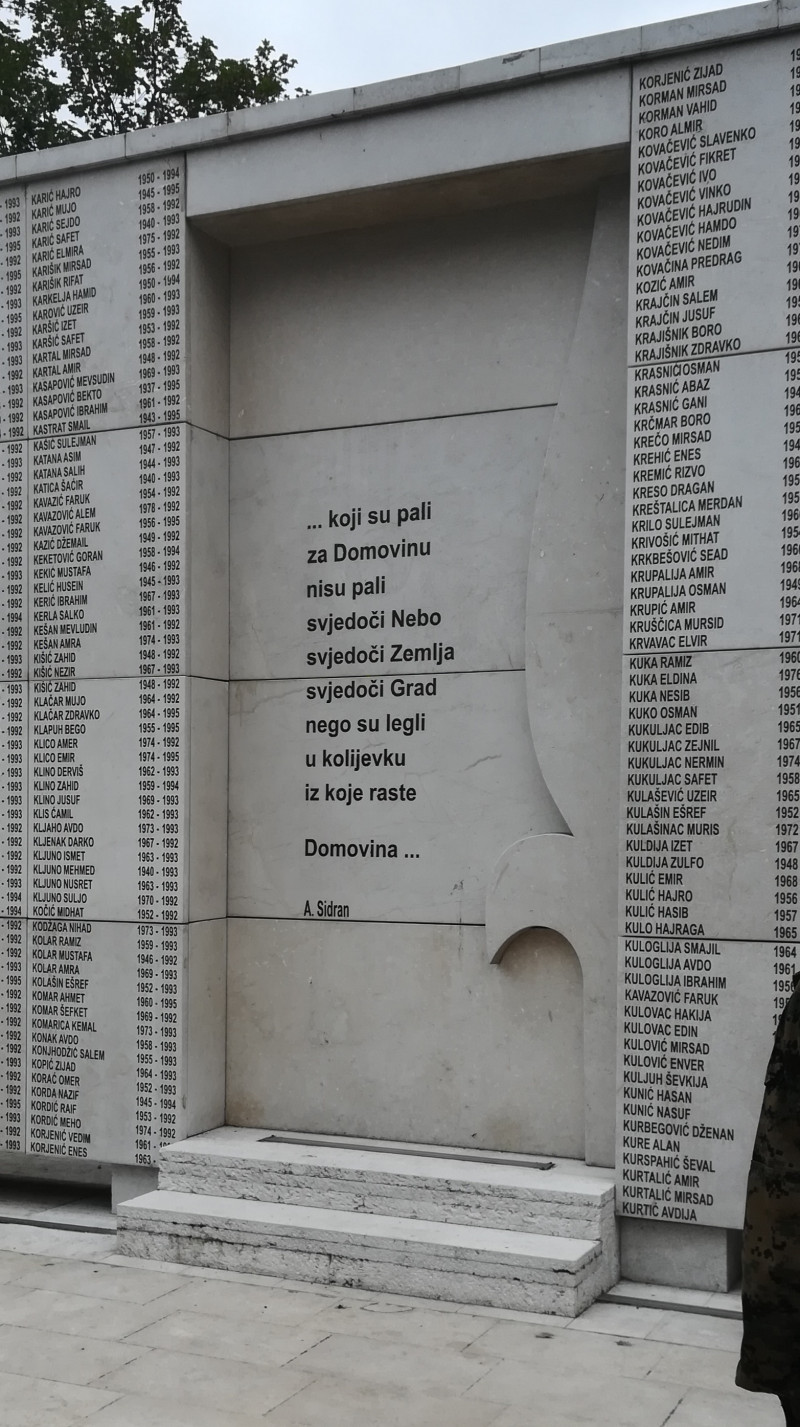 KARIĆ HAJRO 1950 - 1994
KARIĆ MUJO 1945 - 1995
KARIĆ SEJDO 1958 - 1992
KARIĆ SAFET 1940 - 1993
KARIĆ ELMIRA 1975 - 1992
KARIŠIK MIRSAD 1955 - 1993
KARIŠIK RIFAT 1956 - 1992
KARKELJA HAMID 1950 - 1994
KAROVIĆ UZEIR 1960 - 1993
KARŠIĆ IZET 1959 - 1993
KARŠIĆ SAFET 1953 - 1992
KARTAL MIRSAD 1958 - 1992
KARTAL AMIR 1948 - 1992
KASAPOVIĆ MEVSUDIN 1969 - 1993
KASAPOVIĆ BEKTO 1937 - 1995
KASAPOVIĆ IBRAHIM 1961 - 1992
KASTRAT SMAIL 1943 - 1995
KAŠIĆ SULEJMAN 1957 - 1993
KATANA ASIM 1947 - 1992
KATANA SALIH 1944 - 1993
KATICA ŠAĆIR 1940 - 1993
KAVAZIĆ FARUK 1954 - 1992
KAVAZOVIĆ ALEM 1978 - 1992
KAVAZOVIĆ FARUK 1956 - 1995
KAZIĆ DŽEMAIL 1949 - 1992
KEKETOVIĆ GORAN 1958 - 1994
KEKIĆ MUSTAFA 1946 - 1992
KELIĆ HUSEIN 1945 - 1993
KERIĆ IBRAHIM 1967 - 1993
KERLA SALKO 1961 - 1993
KEŠAN MEVLUDIN 1961 - 1992
KEŠAN AMRA 1974 - 1993
KIŠIĆ ZAHID 1948 - 1992
KIŠIĆ NEZIR 1967 - 1993
KIŠIĆ ZAHID 1948 - 1992
KLAČAR MUJO 1964 - 1992
KLAČAR ZDRAVKO 1964 - 1995
KLAPUH BEGO 1955 - 1995
KLICO AMER 1974 - 1992
KLICO EMIR 1974 - 1995
KLINO DERVIŠ 1962 - 1993
KLINO ZAHID 1959 - 1994
KLINO JUSUF 1969 - 1993
KLIS ĆAMIL 1962 - 1993
KLJAHO AVDO 1973 - 1993
KLJENAK DARKO 1967 - 1992
KLJUNO ISMET 1963 - 1993
KLJUNO MEHMED 1940 - 1993
KLJUNO NUSRET 1963 - 1993
KLJUNO SULJO 1970 - 1992
KOČIĆ MIDHAT 1952 - 1992
KODŽAGA NIHAD 1973 - 1993
KOLAR RAMIZ 1959 - 1993
KOLAR MUSTAFA 1946 - 1992
KOLAR AMRA 1969 - 1993
KOLAŠIN EŠREF 1952 - 1993
KOMAR AHMET 1960 - 1995
KOMAR ŠEFKET 1969 - 1992
KOMARICA KEMAL 1973 - 1993
KONAK AVDO 1958 - 1993
KONJHODŽIĆ SALEM 1955 - 1993
KOPIĆ ZIJAD 1964 - 1993
KORAĆ OMER 1952 - 1993
KORDA NAZIF 1945 - 1994
KORDIĆ RAIF 1953 - 1992
KORDIĆ MEHO 1974 - 1992
KORJENIĆ VEDIM 1961 -
KORJENIĆ ENES 1963 -
... koji su pali
za Domovinu
nisu pali
svjedoči Nebo
svjedoči Zemlja
svjedoči Grad
nego su legli
u kolijevku
iz koje raste
Domovina ...
A. Sidran
KORJENIĆ ZIJAD
KORMAN MIRSAD
KORMAN VAHID
KORO ALMIR
KOVAČEVIĆ SLAVENKO
KOVAČEVIĆ FIKRET
KOVAČEVIĆ IVO
KOVAČEVIĆ VINKO
KOVAČEVIĆ HAJRUDIN
KOVAČEVIĆ HAMDO
KOVAČEVIĆ NEDIM
KOVAČINA PREDRAG
KOZIĆ AMIR
KRAJČIN SALEM
KRAJČIN JUSUF
KRAJIŠNIK BORO
KRAJIŠNIK ZDRAVKO
KRASNIĆI OSMAN
KRASNIĆ ABAZ
KRASNIĆ GANI
KRČMAR BORO
KREČO MIRSAD
KREHIĆ ENES
KREMIĆ RIZVO
KRESO DRAGAN
KREŠTALICA MERDAN
KRILO SULEJMAN
KRIVOŠIĆ MITHAT
KRKBEŠOVIĆ SEAD
KRUPALIJA AMIR
KRUPALIJA OSMAN
KRUPIĆ AMIR 1964
KRUŠČICA MURSID 1971
KRVAVAC ELVIR 1971
KUKA RAMIZ 1960
KUKA ELDINA 1976
KUKA NESIB 1956
KUKO OSMAN 1951
KUKULJAC EDIB 1965
KUKULJAC ZEJNIL 1967
KUKULJAC NERMIN 1974
KUKULJAC SAFET 1958
KULAŠEVIĆ UZEIR 1965
KULAŠIN EŠREF 1952
KULAŠINAC MURIS 1972
KULDIJA IZET 1967
KULDIJA ZULFO 1948
KULIĆ EMIR 1968
KULIĆ HAJRO 1956
KULIĆ HASIB 1957
KULO HAJRAGA 1965
KULOGLIJA SMAJIL 1964
KULOGLIJA AVDO 1961
KULOGLIJA IBRAHIM
KAVAZOVIĆ FARUK
KULOVAC HAKIJA
KULOVAC EDIN
KULOVIĆ MIRSAD
KULOVIĆ ENVER
KULJUH ŠEVKIJA
KUNIĆ HASAN
KUNIĆ NASUF
KURBEGOVIĆ DŽENAN
KURE ALAN
KURSPAHIĆ ŠEVAL
KURTALIĆ AMIR
KURTALIĆ MIRSAD
KURTIČ AVDIJA